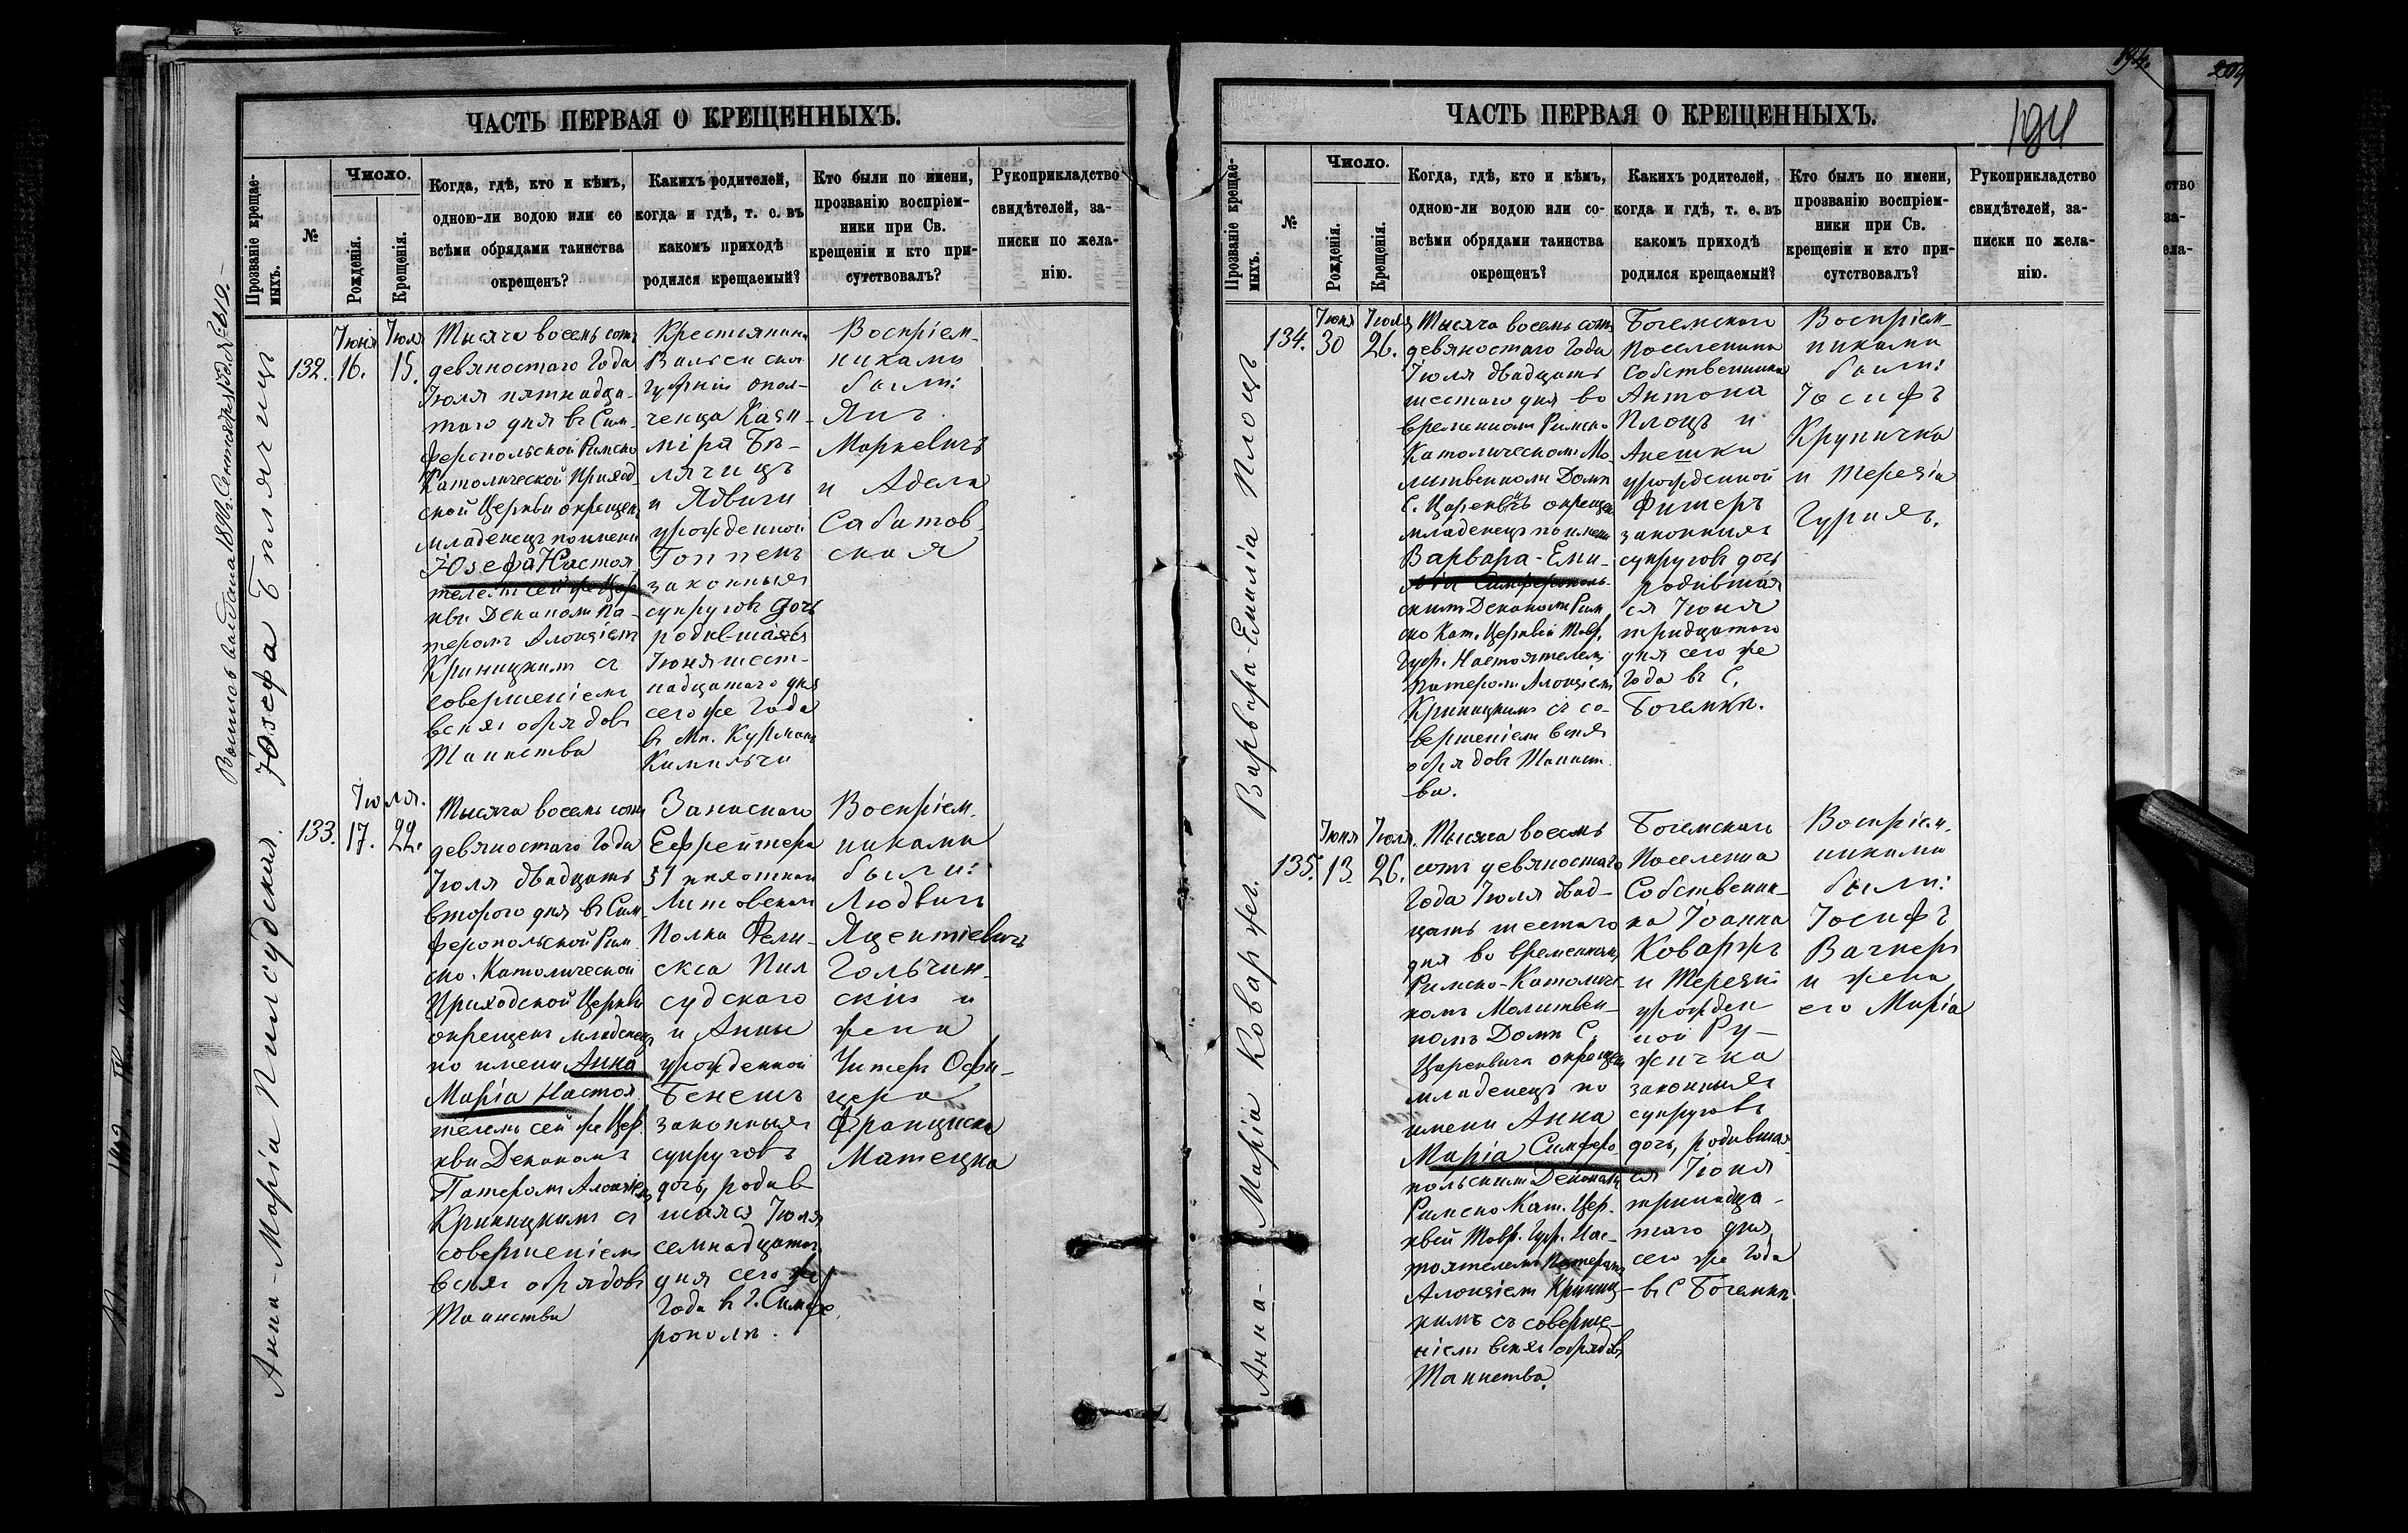 ЧАСТЬ ПЕРВАЯ О КРЕЩЕННЫХЪ.
Прозваніе крещае-
мыхъ.
№
Число.
Рожденія.
Крещенія.
Когда, гдѣ, кто и кѣмъ,
одною-ли водою или со
всѣми обрядами таинства
окрещенъ?
Какихъ родителей,
когда и гдѣ, т. е. въ
какомъ приходѣ
родился крещаемый?
Кто были по имени,
прозванію воспріем-
ники при Св.
крещеніи и кто при-
сутствовалъ?
Рукоприкладство
свидѣтелей, за-
писки по жела-
нію.
Юзефа Бѣлячицъ
132.
Іюня
16.
Іюля
15.
Тысяча восемь сотъ
девяностаго Года
Іюля пятнадца-
таго дня въ Сим-
феропольской Римско
Католической Приход-
ской Церкви окрещенъ
младенецъ по имени
Юзефа Настоя-
телемъ сей же Цер-
кви Деканомъ Па-
теромъ Алоизіемъ
Криницкимъ съ
совершеніемъ
всѣхъ обрядовъ
Таинства
Крестьянина
губерніи опол-
ченца Кази-
міра Бѣ-
лячицъ
и Ядвиги
урожденной
Гоппенъ
законныхъ
супруговъ дочь
родившаяся
Іюня шест-
надцатаго дня
сего же Года
въ Мѣ. Курманъ
Кимильчи
Воспріем-
никами
были:
Янъ
Маркевичъ
и Адела
Сабатов-
ская
Анна-Марія Пилсудская.
133.
Іюля.
17.
22.
Тысяча восемь сотъ
девяностаго Года
Іюля двадцать
второго дня въ Сим-
феропольской Рим
ско-Католической
Приходской Церкви
окрещенъ младенецъ
по имени Анна
Марія Настоя
телемъ сей же Цер-
кви Деканомъ
Патеромъ Алоизіемъ
Криницкимъ съ
совершеніемъ
всѣхъ обрядовъ
Таинства
Запаснаго
Ефрейтера
51 пѣхотнаго
Литовскаго
Полка Фели-
кса Пил
судскаго
и Анны
урожденной
Бенешъ
законныхъ
супруговъ
дочь, родив
шаяся Іюля
семнадцатаго
дня сего же
Года въ г. Симфе
рополѣ.
Воспріем-
никами
были:
Людвигъ
Яцентіевичъ
Гольчин-
скій и
жена
Унтеръ Офи-
цера
Франциска
Матецка
ЧАСТЬ ПЕРВАЯ О КРЕЩЕННЫХЪ.
194
194.
Прозваніе крещае-
мыхъ.
№
Число.
Рожденія.
Крещенія.
Когда, гдѣ, кто и кѣмъ,
одною-ли водою или со-
всѣми обрядами таинства
окрещенъ?
Какихъ родителей,
когда и гдѣ, т. е. въ
какомъ приходѣ
родился крещаемый?
Кто былъ по имени,
прозванію воспріем-
ники при Св.
крещеніи и кто при-
сутствовалъ?
Рукоприкладство
свидѣтелей, за-
писки по жела-
нію.
Варвара-Емилія Плоцъ
134.
Іюня
30
Іюля
26.
Тысяча восемь сотъ
девяностаго Года
Іюля двадцать
шестаго дня во
временномъ Римско
Католическомъ Мо-
литвенномъ Домѣ
С. Царевичъ окрещенъ
младенецъ по имени
Варвара-Еми-
лія Симферополь-
скимъ Деканомъ Рим
ско Кат. Церквей Тавр.
Губ. Настоятелемъ
Патеромъ Алоизіемъ
Криницкимъ съ со-
вершеніемъ всѣхъ
обрядовъ Таинст-
ва.
Богемскаго
Поселенина
Собственника
Антона
Плоцъ и
Анешки
урожденной
Фишеръ
законныхъ
супруговъ дочь
родившая
ся Іюня
тридцатаго
дня сего же
Года въ С.
Богемкѣ.
Воспріем-
никами
были:
Іосифъ
Крупичка
и Терезія
Гурихъ.
Анна-Марія Коваржъ.
135.
Іюня
13.
Іюля.
26.
Тысяча восемь
сотъ девяностаго
Года Іюля двад-
цать шестаго
дня во временномъ
Римско-Католичес-
комъ Молитвен-
номъ Домѣ С.
Царевичъ окрещенъ
младенецъ по
имени Анна
Марія Симферо
польскимъ Деканомъ
Римско Кат. Цер-
квей Тавр. Губ. Нас-
тоятелемъ Патеромъ
Алоизіемъ Криниц-
кимъ съ соверше-
ніемъ всѣхъ обрядовъ
Таинства.
Богемскаго
Поселенца
Собственни-
ка Іоанна
Коваржъ
и Терезіи
урожден
ной Ру-
жичка
законныхъ
супруговъ
дочь, родивша-
яся Іюня
тринадца-
таго дня
сего же Года
въ С Богемкѣ.
Воспріем-
никами
были:
Іосифъ
Вагнеръ
и жена
его Марія